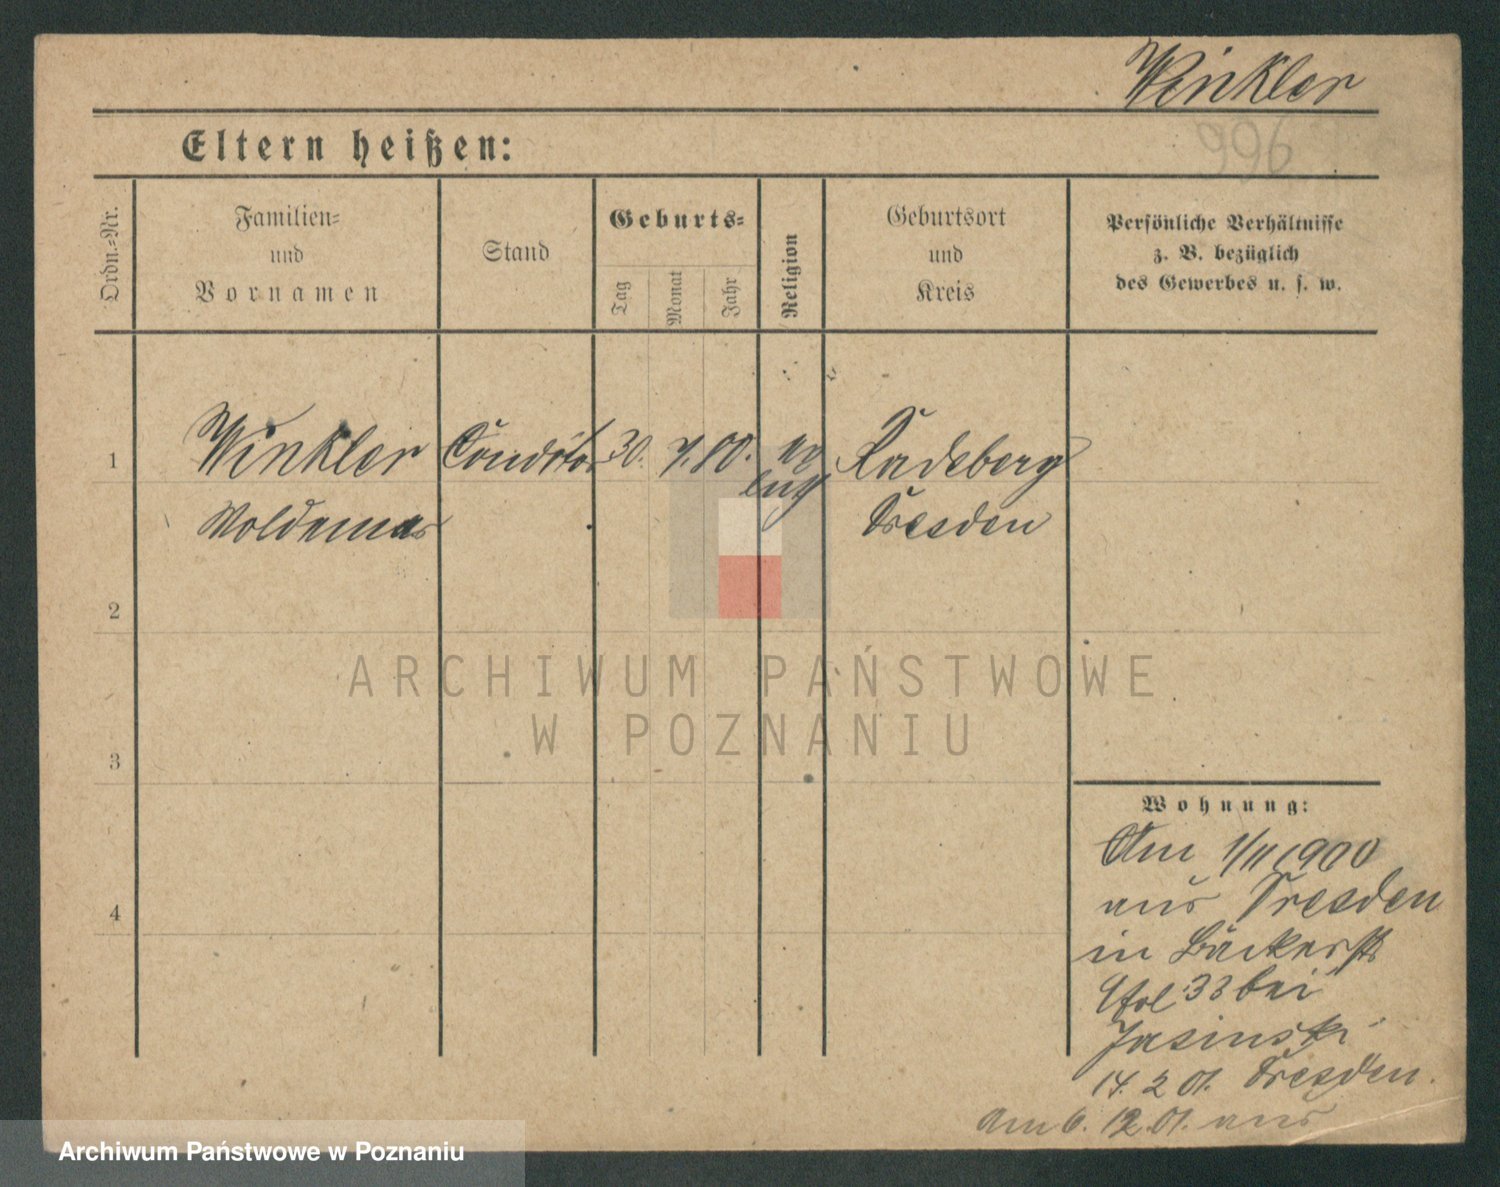 Winkler
996
Eltern heißen:
Ordn.-Nr.
Familien-
und
Vornamen
Stand
Geburts-
Tag
Monat
Jahr
Religion
Geburtsort
und
Kreis
Persönliche Verhältnisse
z. B. bezüglich
des Gewerbes u. s. w.
1
Winkler Conditor 30. 7. 80. Radeberg
Woldemar Dresden
2
3
4
Wohnung:
Am 1/11 1900
aus Dresden
in Bäckerstr
33 bei
Jasinski
14. 2 01. Dresden.
Am 6. 12. 01. aus
ARCHIWUM PAŃSTWOWE
W POZNANIU
Archiwum Państwowe w Poznaniu